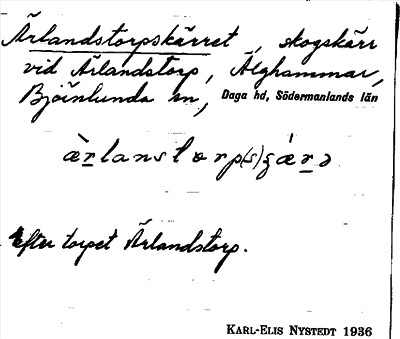 Ärlandstorpskärret, skogskärr
vid Ärlandstorp, Älghammar,
Björnlunda sn, Daga hd, Södermanlands län
Efter torpet Ärlandstorp.
KARL-ELIS NYSTEDT 1936